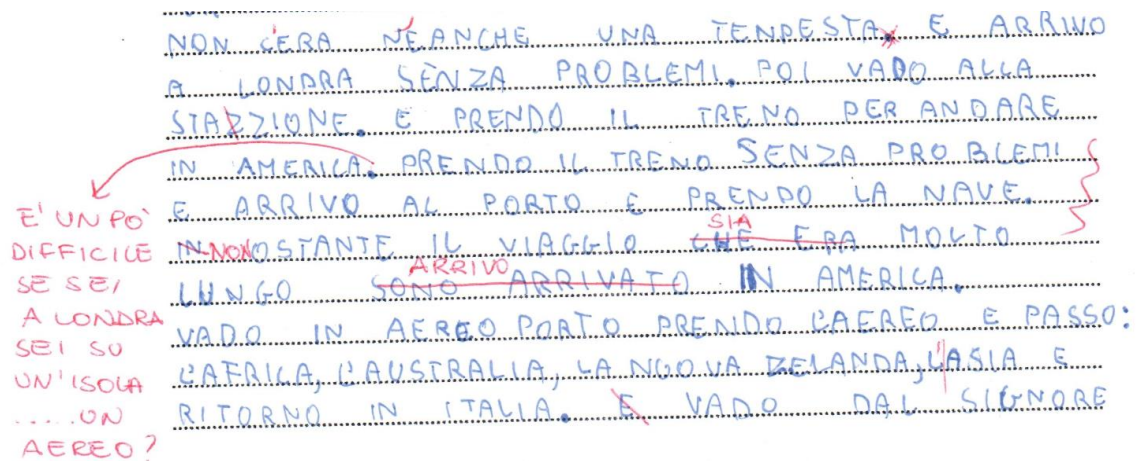 NON C'ERA NEANCHE UNA TENPESTA. E ARRIVO
A LONDRA SENZA PROBLEMI. POI VADO ALLA
STAZZIONE. E PRENDO IL TRENO PER ANDARE
IN AMERICA. PRENDO IL TRENO SENZA PROBLEMI
E ARRIVO AL PORTO E PRENDO LA NAVE.
SIA
NONOSTANTE IL VIAGGIO CHE ERA MOLTO
ARRIVO
LUNGO SONO ARRIVATO IN AMERICA.
VADO IN AEREOPORTO PRENDO L'AEREO E PASSO:
L'AFRICA, L'AUSTRALIA, LA NUOVA ZELANDA, L'ASIA E
RITORNO IN ITALIA. E VADO DAL SIGNORE
E' UN PO'
DIFFICILE
SE SEI
A LONDRA
SEI SU
UN'ISOLA
.....UN
AEREO?